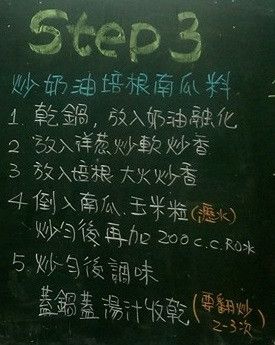 Step 3
炒奶油培根南瓜料
1 乾鍋，放入奶油融化
2 放入洋蔥炒軟炒香
3 放入培根大火炒香
4 倒入南瓜、玉米粒(瀝水)
炒勻後再加200c.c.RO水
5.炒勻後調味
蓋鍋蓋湯汁收乾(要翻炒2-3次)